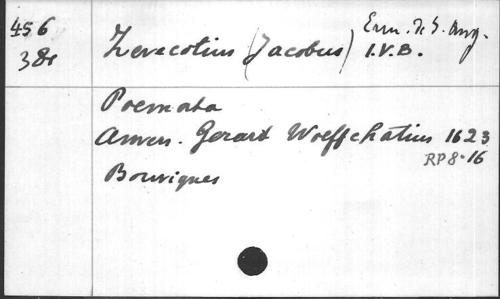 456
38
Zevecotius (Jacobus) Erm. de S. Aug.
I.V.B.
Poemata
Anven. Gerart Woeffchatius 1623
RP8-16
Bouvignes